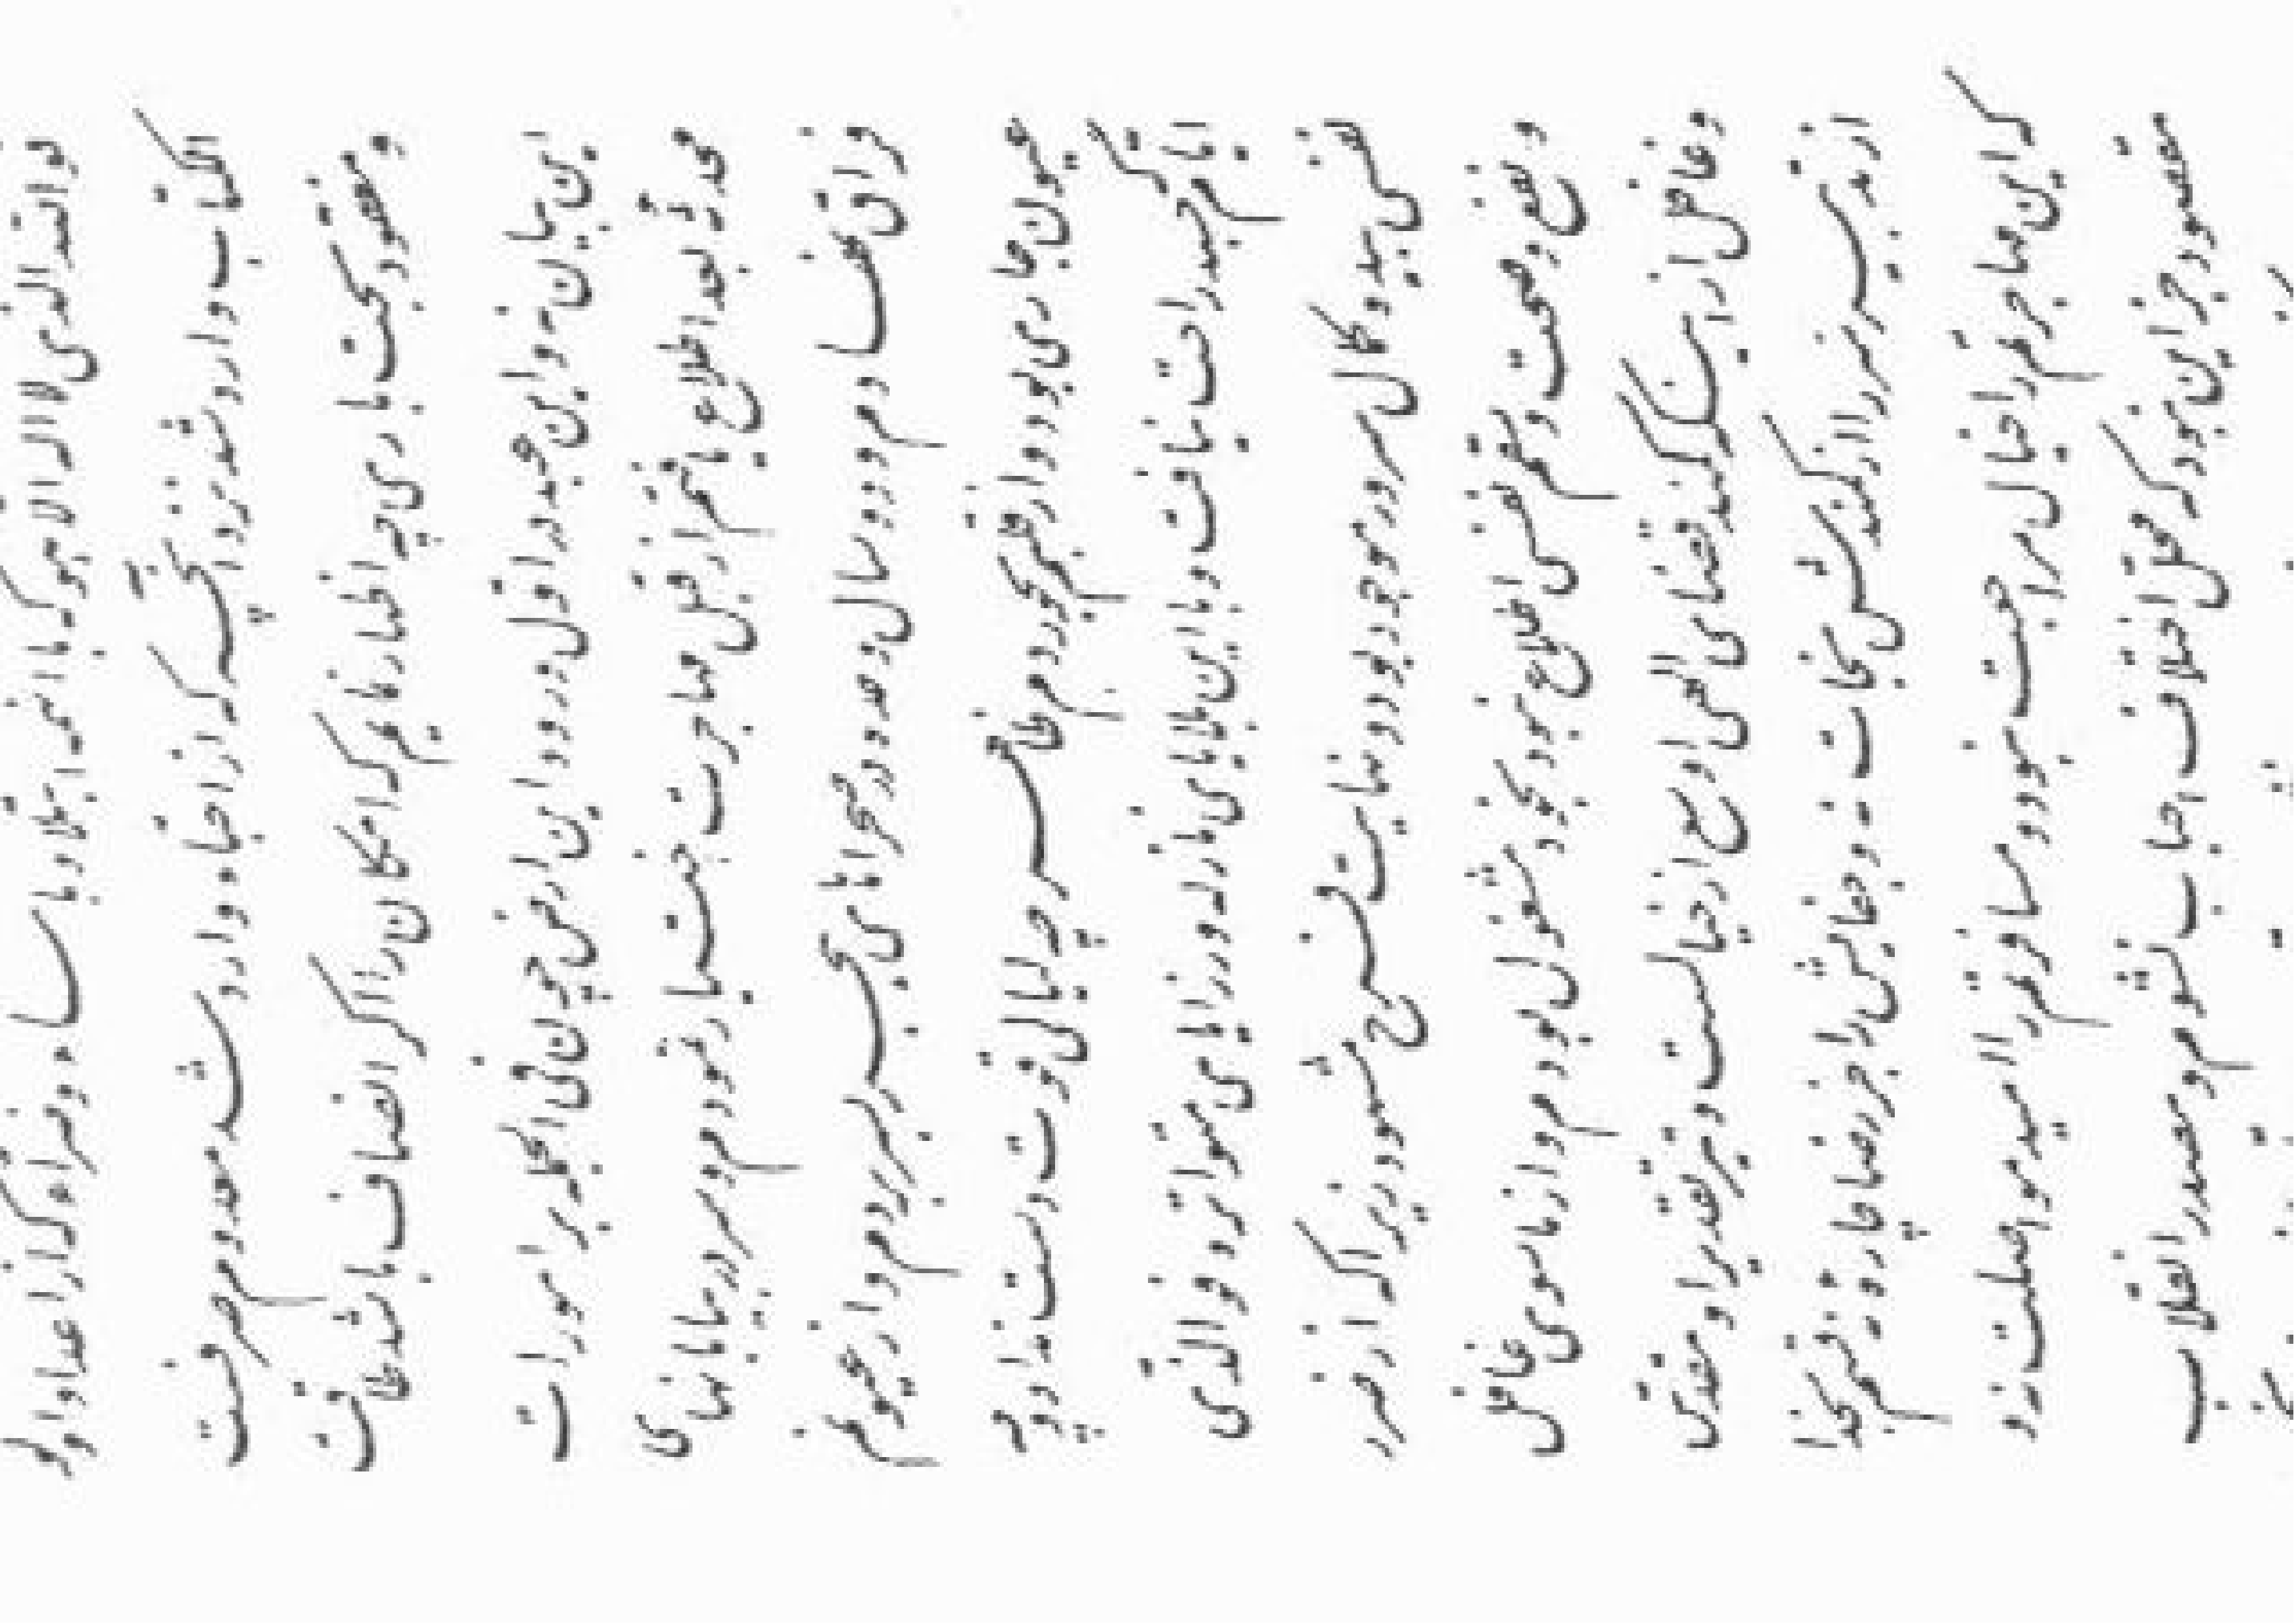 فو الله الذی لا اله الا هو که با آنهمه ابتلا و بأساء و ضراء که از اعدا و اولی
الکتاب وارد شد نزد آنچه که از احبا وارد شد معدوم صرفست
و مفقود بحت باری چه اظهار نمایم که امکان را اگر انصاف باشد طاقت
این بیان نه و این عبد در اول ورود این ارض چون فی الجمله بر امورات
محدثه بعد اطلاع یافتم از قبل مهاجرت جستم اختیار نمودم و سر در بیابانهای
فراق نهادم و دو سال وحده در صحراهای هجر بسر بردم و از عیونم
عیون جاری بود و از قلبم بحور دم ظاهر چه لیالی که قوت دست نداد و چه
ایام که جسد راحت نیافت و با این بلایای نازله و رزایای متواتره فو الذی
نفسی بیده کمال سرور موجود بود و نهایت فرح مشهود زیرا که از ضرر
و نفع و صحت و سقم نفسی اطلاع نبود بخود مشغول بودم و از ماسوی غافل
و غافل از اینکه کمند قضای الهی اوسع از خیالست و تیر تقدیر او مقدس
از تدبیر سر را از کمندش نجات نه و قضایش را جز رضا چاره نه قسم بخدا
که این مهاجرتم را خیال مراجعت نبود و مسافرتم را امید مواصلت نه و
مقصود جز این نبود که محل اختلاف احباب نشوم و مصدر انقلاب